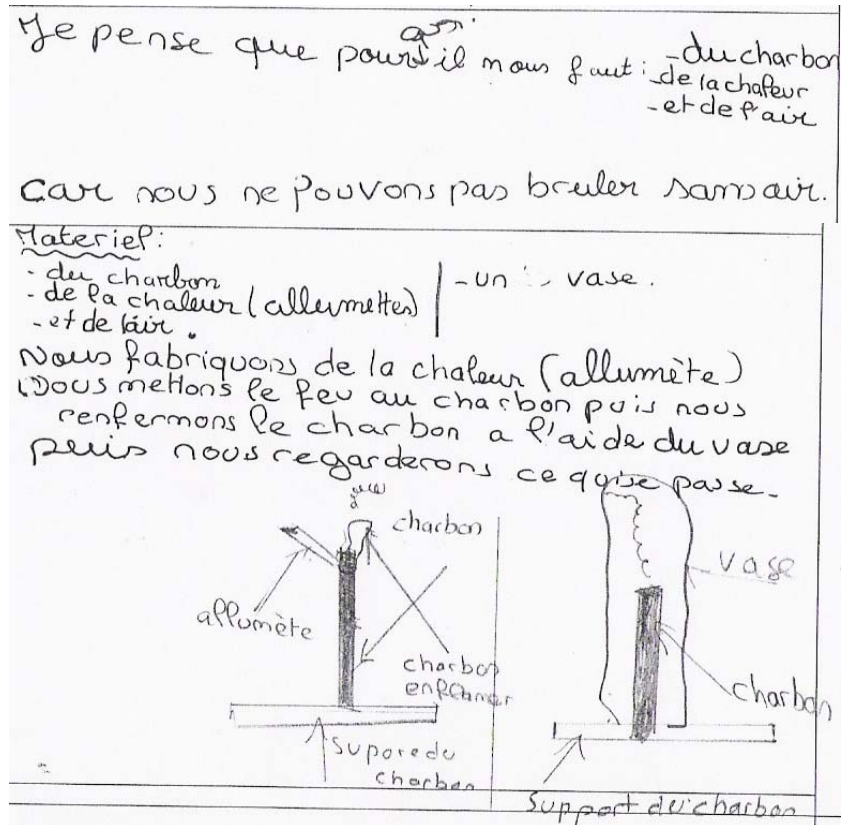 Je pense que pour il nous faut : - du charbon
- de la chaleur
- et de l'air
car nous ne Pouvons pas bruler sans air.
Materiel :
- du charbon
- de la chaleur (allumettes)
- et de l'air.
- un vase.
Nous fabriquons de la chaleur (allumète)
Nous mettons le feu au charbon puis nous
renfermons le charbon a l'aide du vase
puis nous regarderons ce qui se passe.
charbon
allumète
charbon
enflamer
suporedu
charbon
vase
charbon
Support du charbon